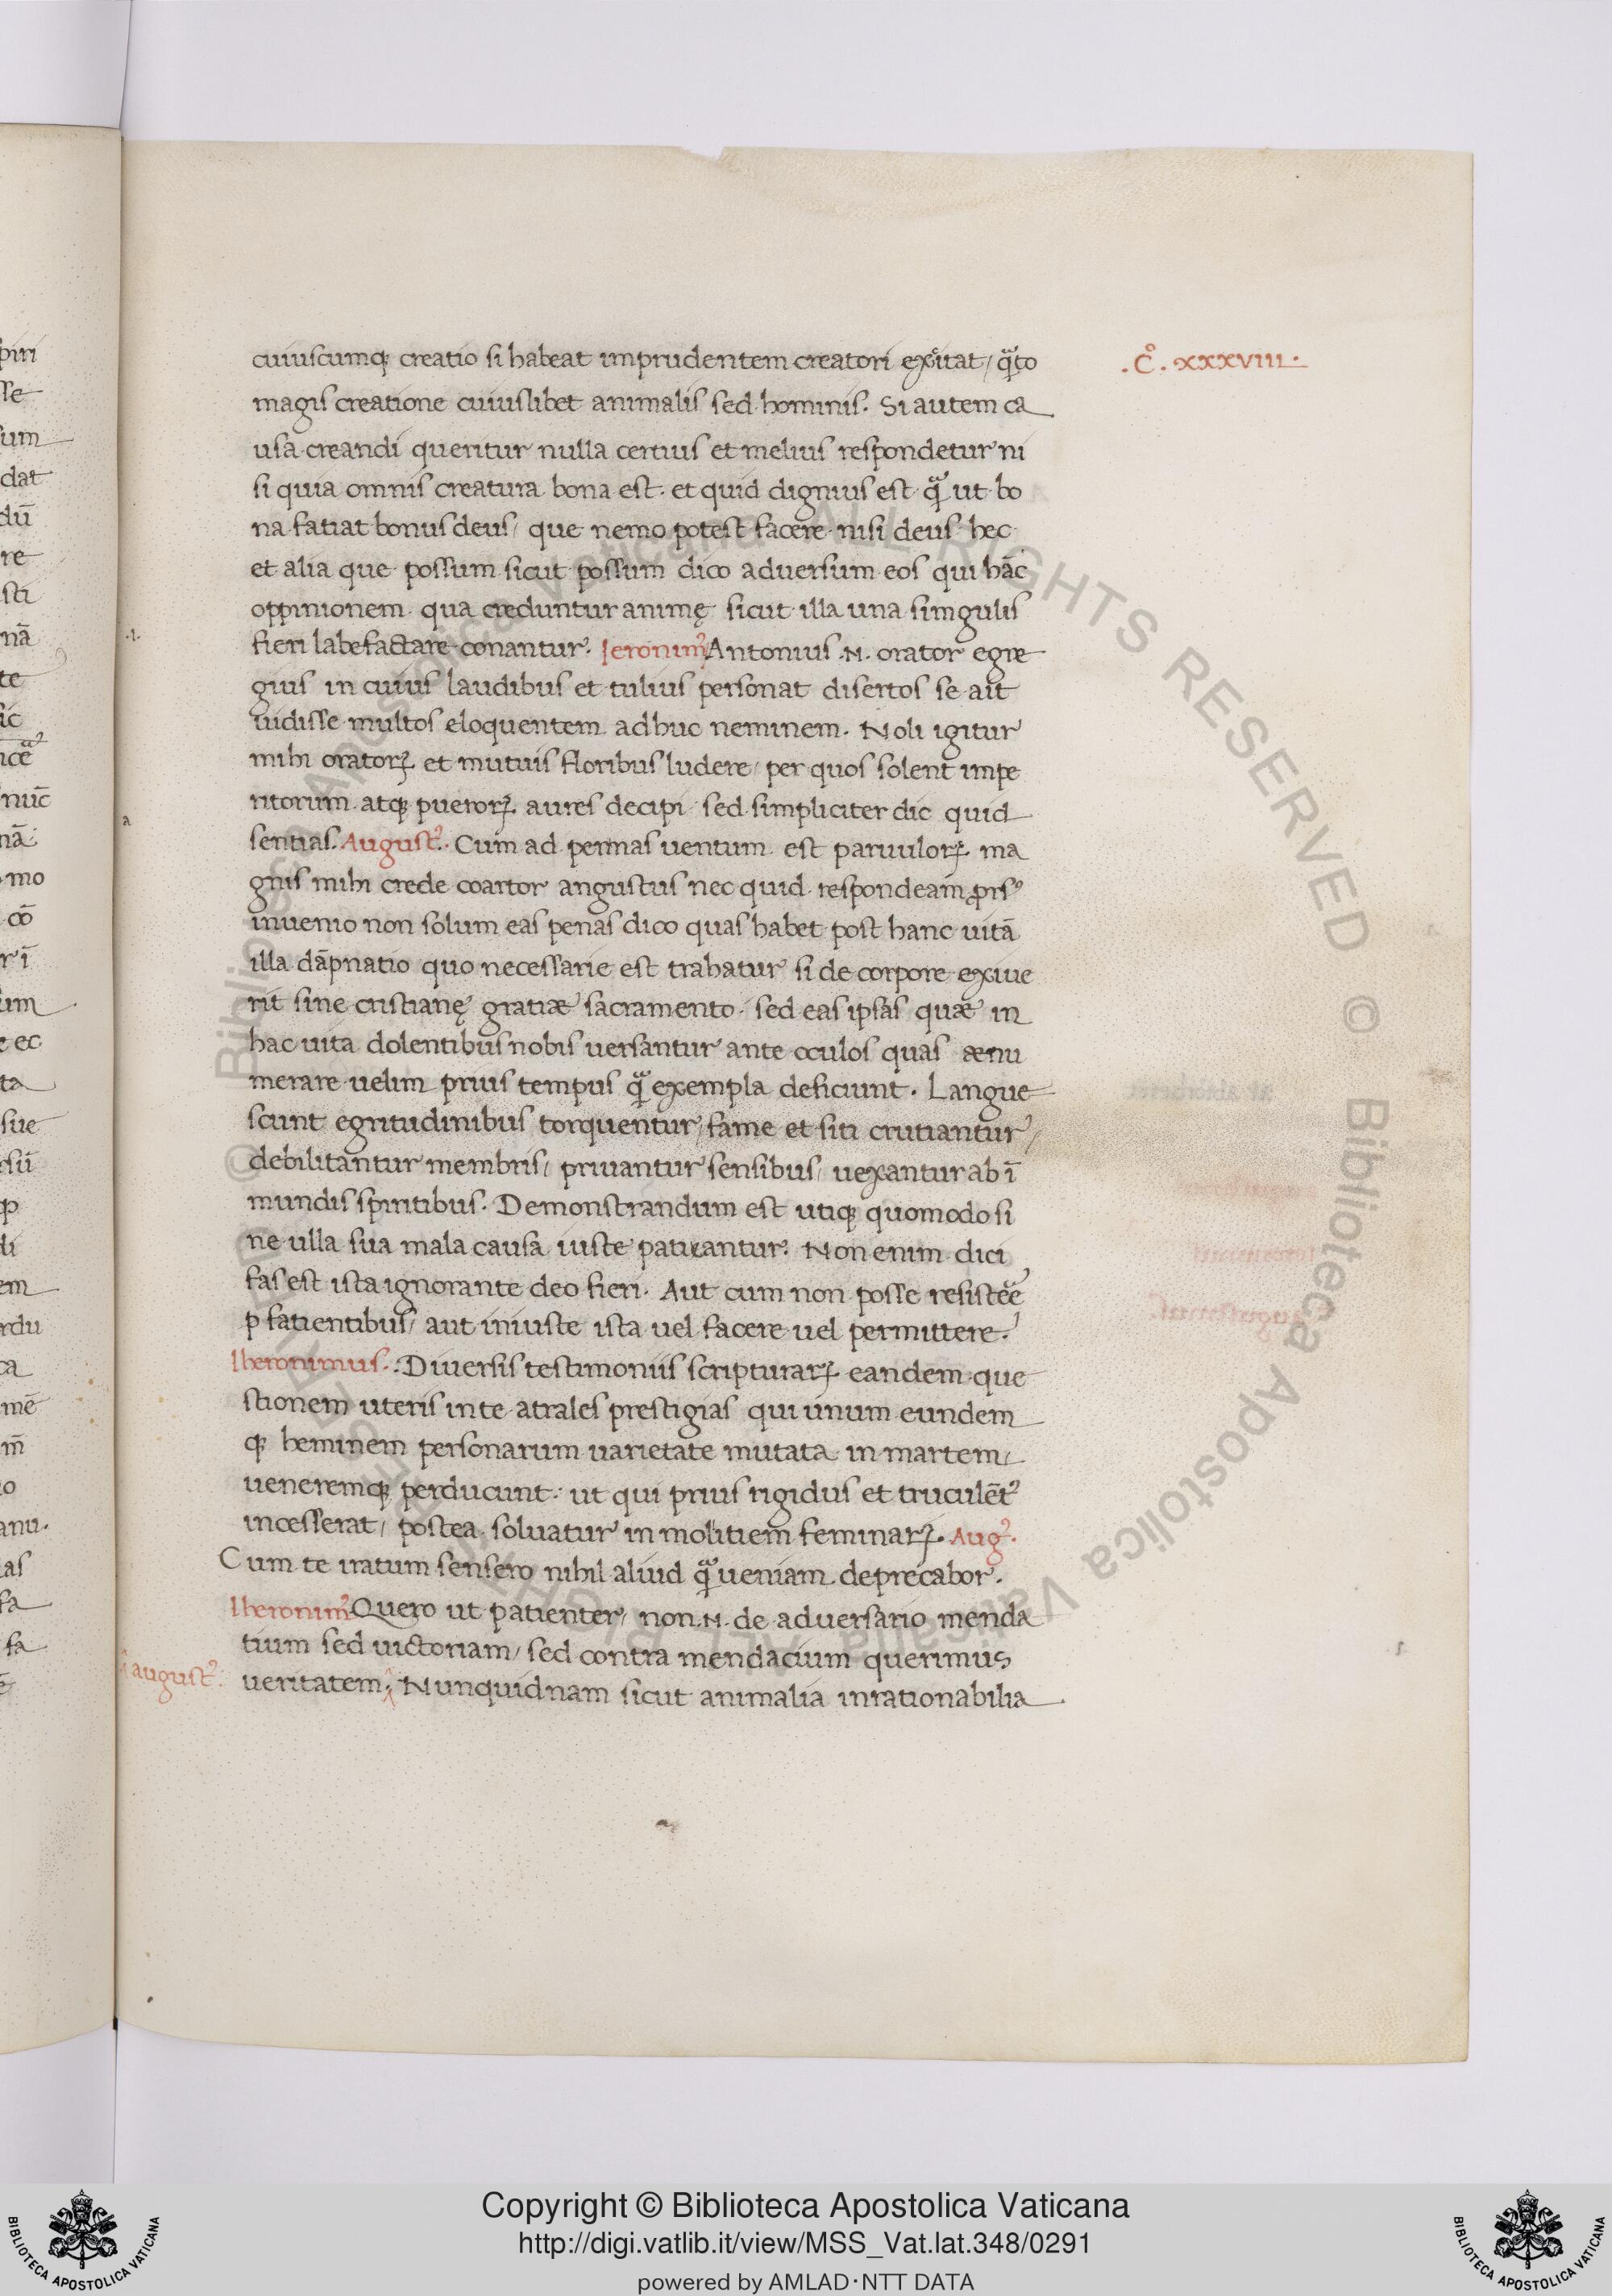 cuiuscumq; creatio si habeat imprudentem creatori exͦitat / qͣ̄to
.Cͦ. xxxviii.
magis creatione cuiuslibet animalis sed hominis. Si autem ca
usa creandi queritur nulla certius et melius respondetur ni
si quia omnis creatura bona est. et quid dignius est qͣ̄ ut bo
na fatiat bonus deus / que nemo potest facere nisi deus hec
et alia que possum sicut possum dico adversum eos qui hāc
oppinionem qua creduntur animę sicut illa una simgulis
fieri labefactare conantur. Ieronimꝰ Antonius .N. orator egre
gius in cuius laudibus et tulius personat disertos se ait
uidisse multos eloquentem adhuc neminem. Noli igitur
mihi oratorꝝ et mutuis floribus ludere / per quos solent impe
ritorum atq; puerorꝝ aures decipi sed simpliciter dic quid
sentias. Augustꝰ. Cum ad pennas uentum est paruulorꝝ ma
gnis mihi crede coartor angustus nec quid respondeam prsꝰ
inuenio non solum eas penas dico quas habet post hanc uitā
illa dāpnatio quo necessarie est trahatur si de corpore exiue
rit sine cristianę gratiæ sacramento. sed eas ipsas quæ in
hac uita dolentibus nobis uersantur ante oculos quas ænu
merare uelim prius tempus qͣ̄ exempla deficiunt. Langue
scunt egritudinibus torquentur / fame et siti crutiantur /
debilitantur membris / priuantur sensibus / uexantur ab ī
mundis spiritibus. Demonstrandum est utiq; quomodo si
ne ulla sua mala causa iuste patiantur. Non enim dici
fas est ista ignorante deo fieri. Aut cum non posse resistēe
p fatientibus / aut iniuste ista uel facere uel permittere.
Iheronimus. Diuersis testimoniis scripturarꝝ eandem que
stionem uteris inte atrales prestigias qui unum eundem
q; heminem personarum uarietate mutata in martem /
ueneremq; perducunt. ut qui prius rigidus et truculētꝰ
incesserat / postea soluatur in molitiem feminarꝝ. Augꝰ.
Cum te iratum sensero nihil aliud qͣ̄ ueniam deprecabor.
Iheronimꝰ Quero ut patienter / non .N. de aduersario menda
tium sed uictoriam / sed contra mendacium querimus
augustꝰ. ueritatem. Nunquidnam sicut animalia inrationabilia
Copyright © Biblioteca Apostolica Vaticana
http://digi.vatlib.it/view/MSS_Vat.lat.348/0291
powered by AMLAD·NTT DATA